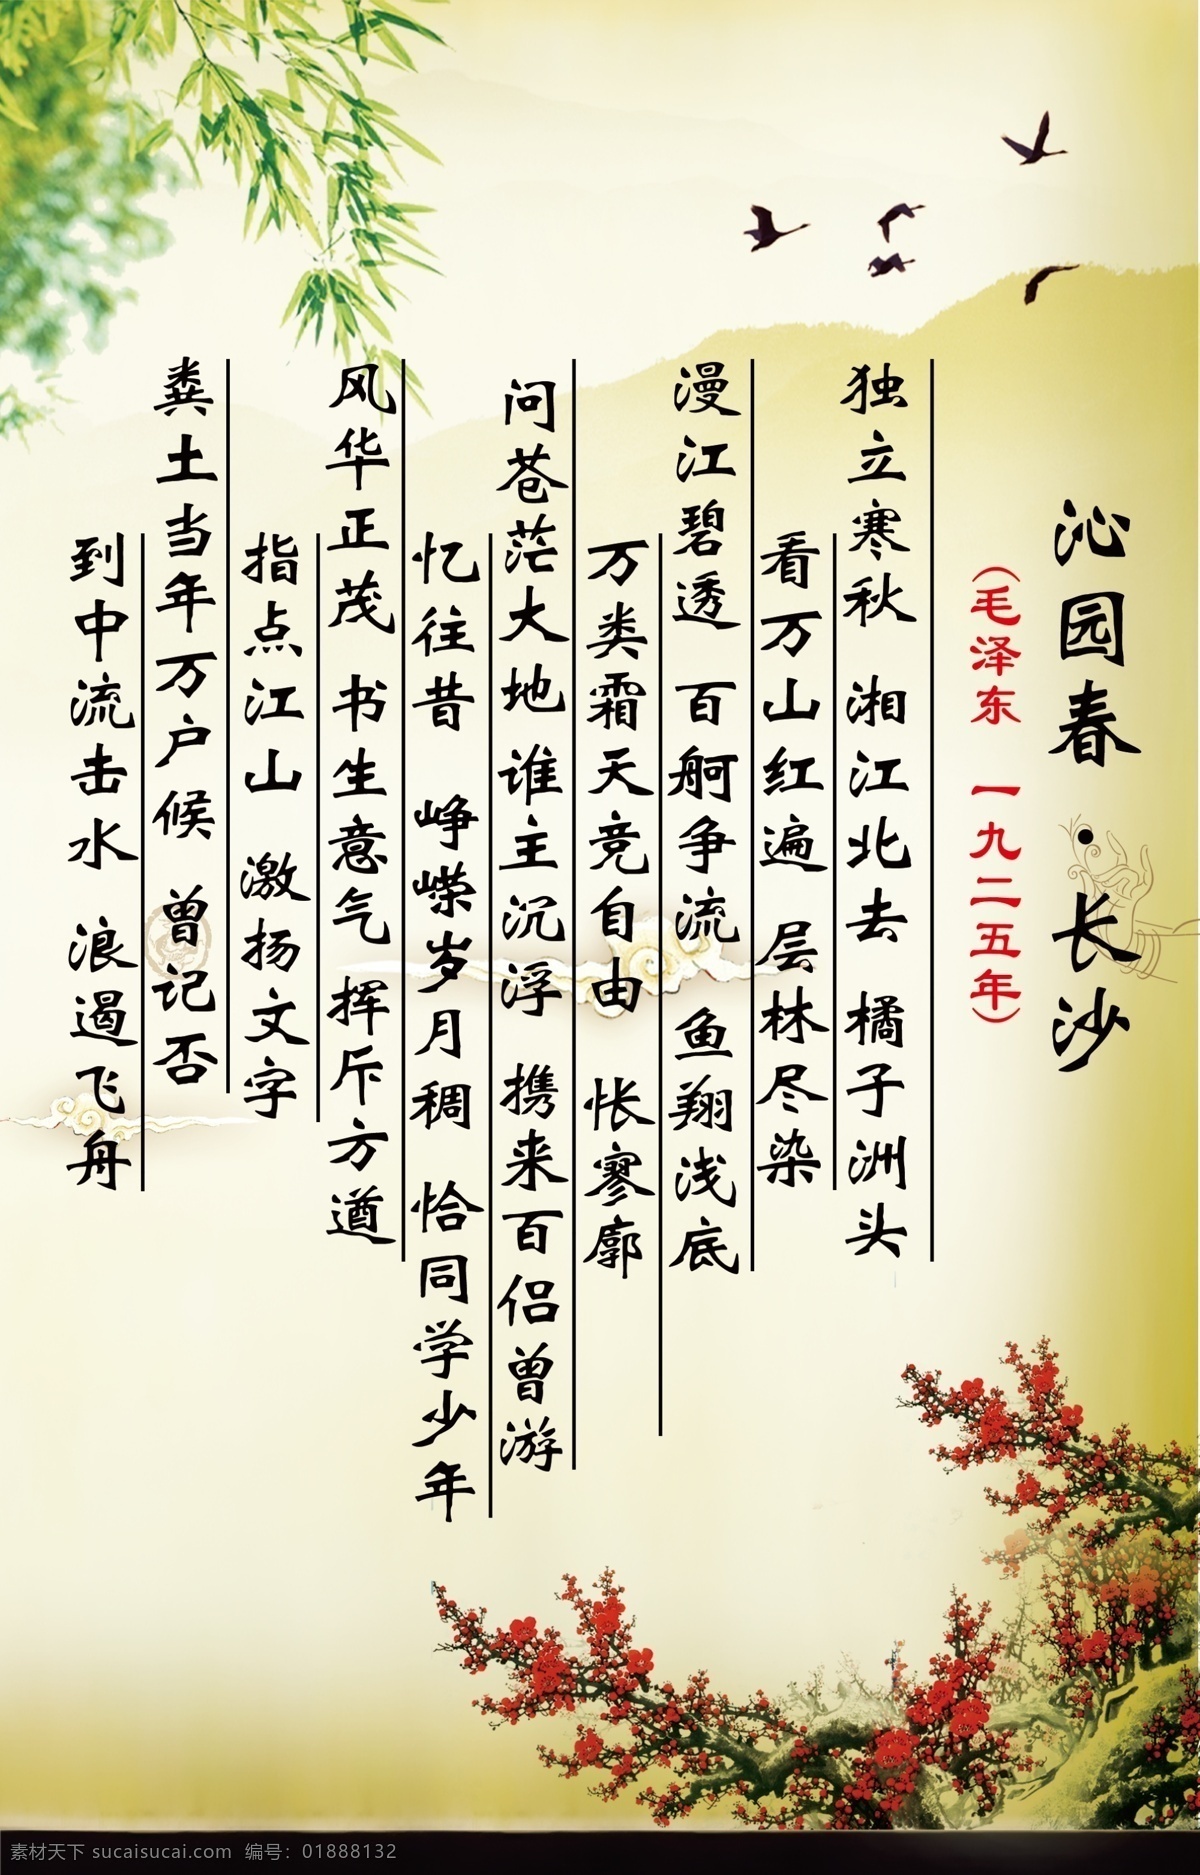 沁园春·长沙
（毛泽东 一九二五年）
独立寒秋 湘江北去 橘子洲头
看万山红遍 层林尽染
漫江碧透 百舸争流 鱼翔浅底
万类霜天竞自由 怅寥廓
问苍茫大地 谁主沉浮 携来百侣曾游
忆往昔 峥嵘岁月稠 恰同学少年
风华正茂 书生意气 挥斥方遒
指点江山 激扬文字
粪土当年万户候 曾记否
到中流击水 浪遏飞舟
素材天下 sucaisucai.com 编号：01888132